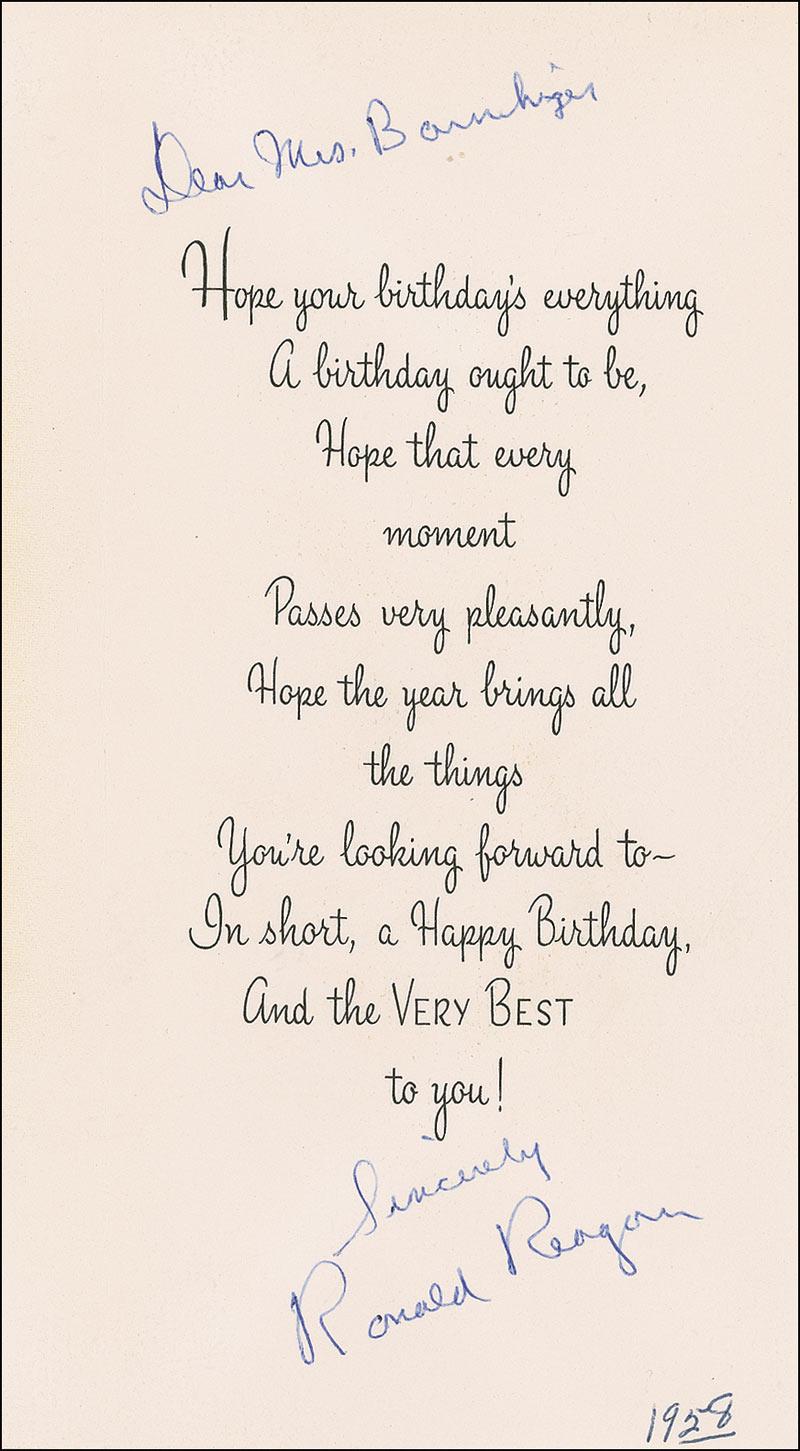 Dear Mrs.
Hope your birthday's everything
A birthday ought to be,
Hope that every
moment
Passes very pleasantly,
Hope the year brings all
the things
You're looking forward to~
In short, a Happy Birthday,
And the VERY BEST
to you!
Sincerely
Ronald Reagan
1958